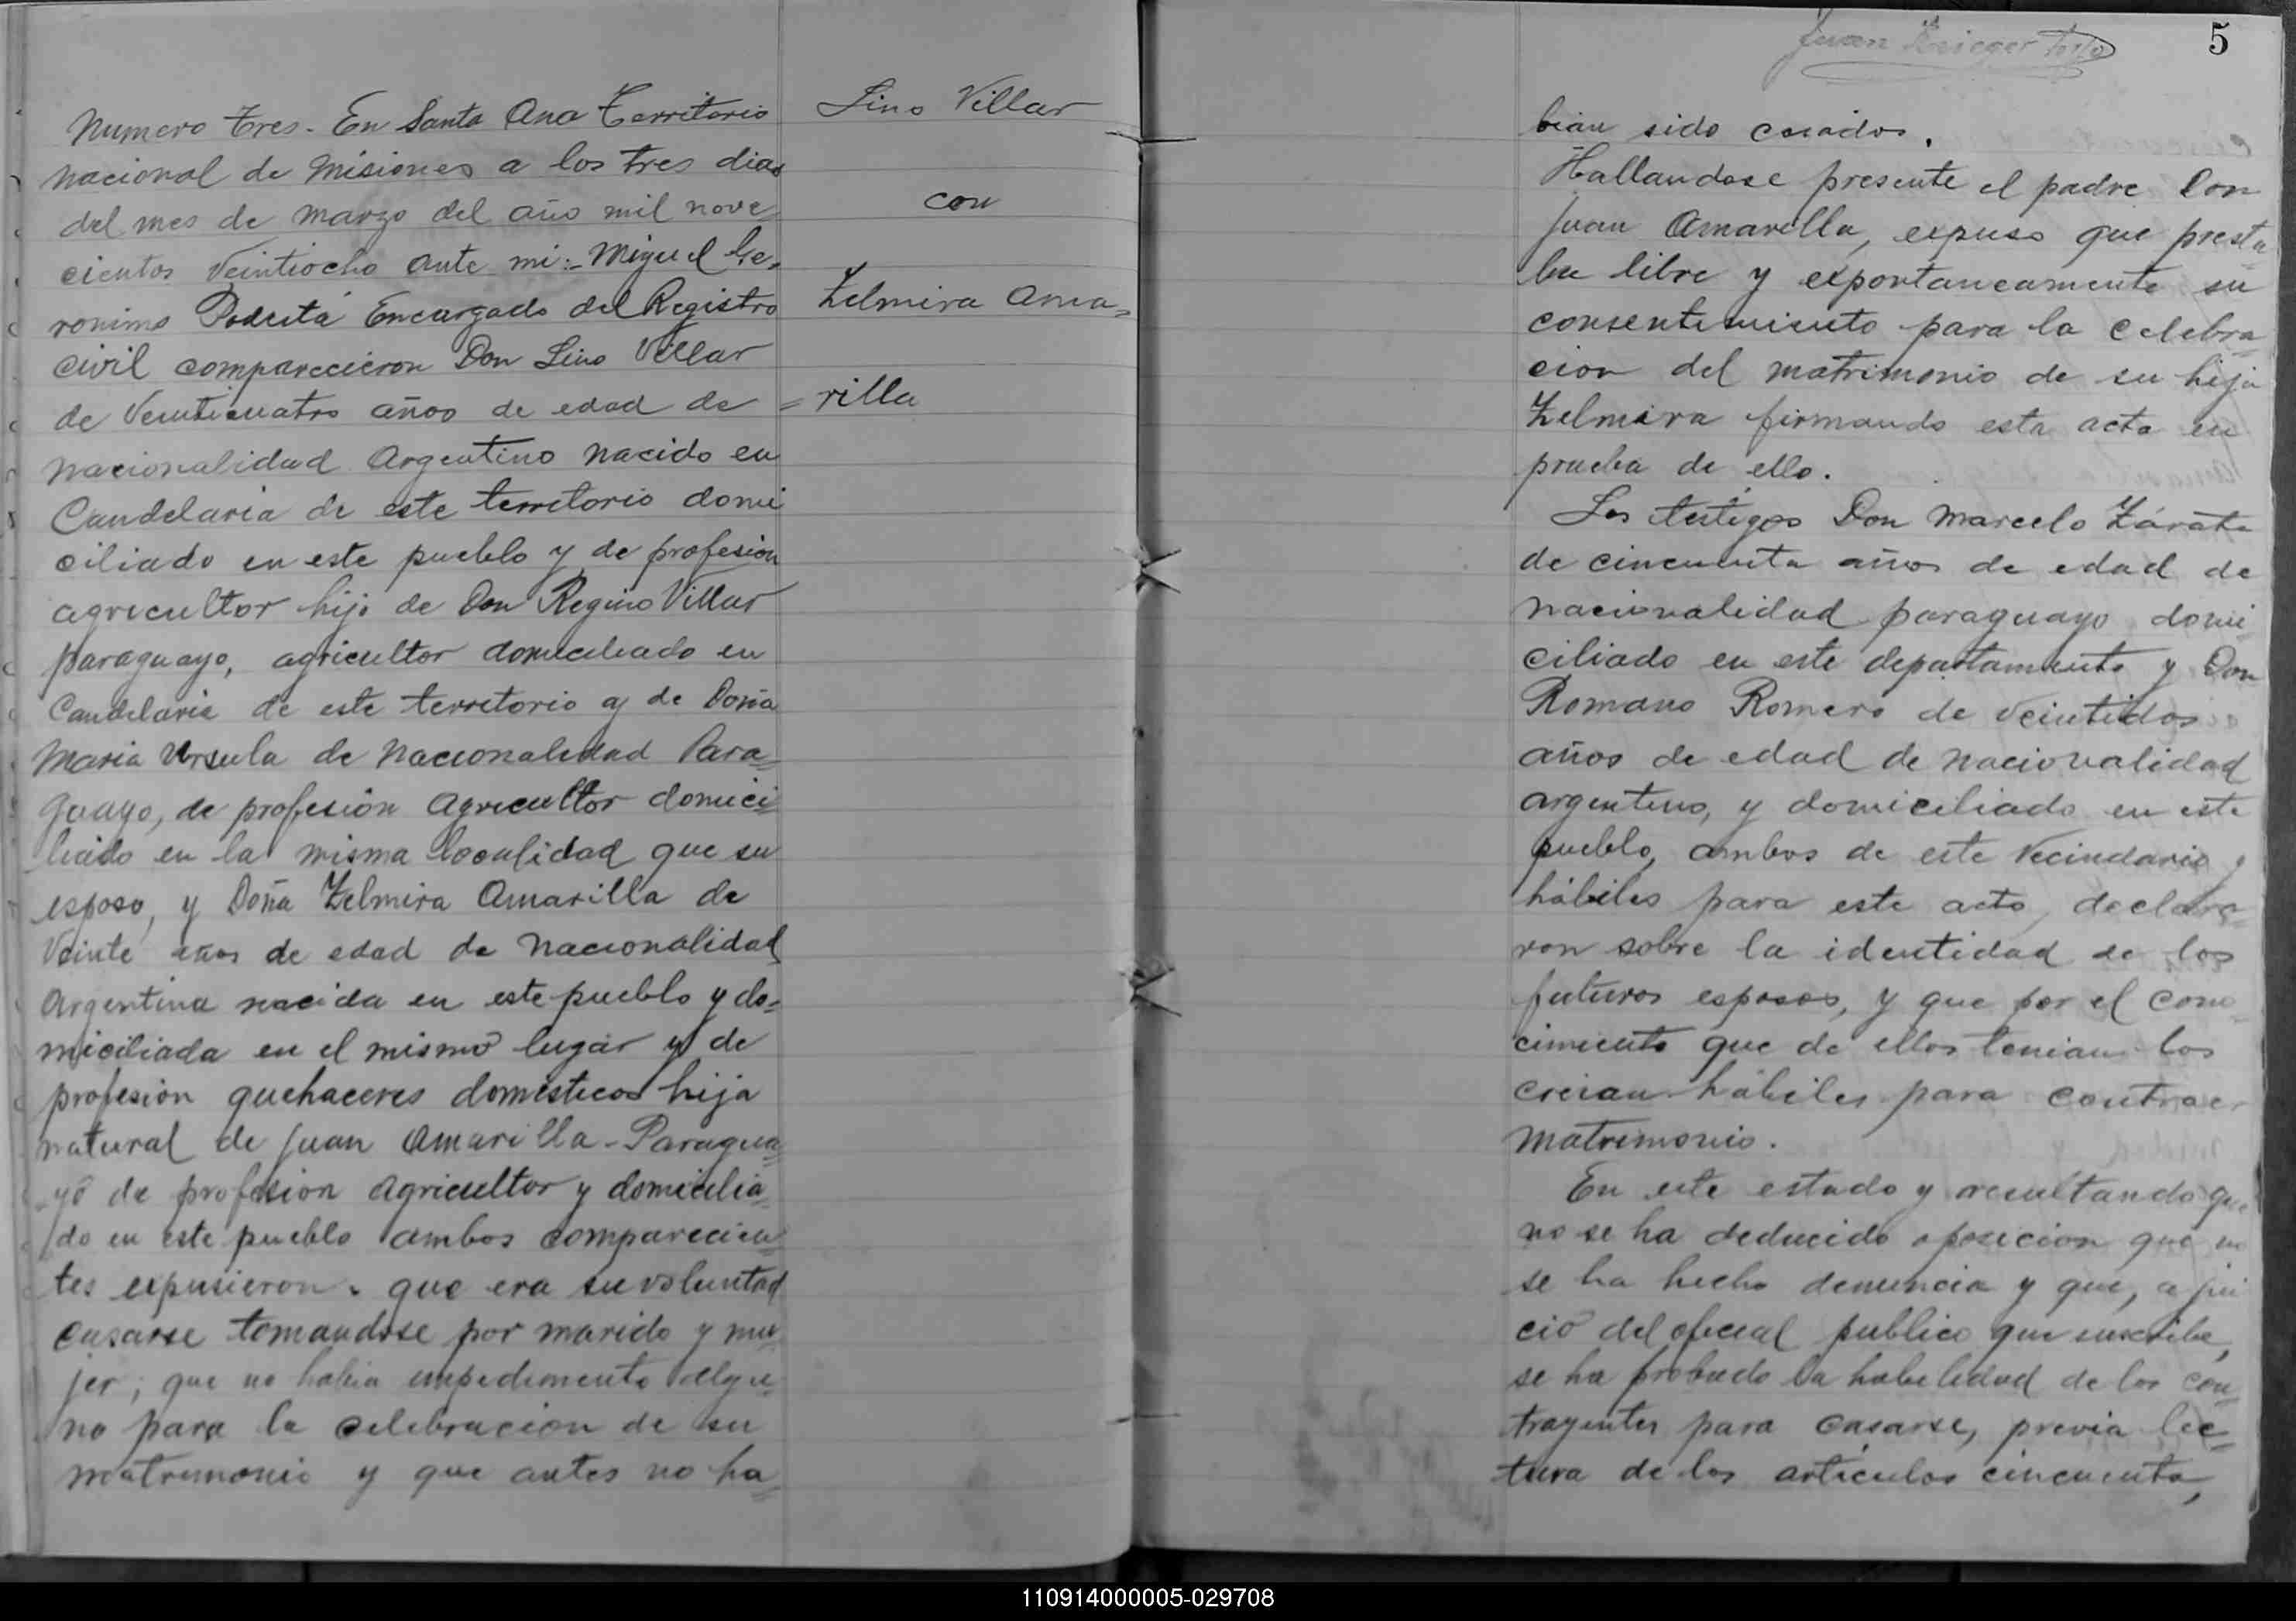 Numero tres. En Santa Ana Territorio
nacional de Misiones a los tres dias
del mes de marzo del año mil nove=
cientos Veintiocho ante mi:- Miguel Ge=
ronimo Podestá Encargado del Registro
civil comparecieron Don Lino Villar
de Veinticuatro años de edad de
nacionalidad Argentino nacido en
Candelaria de este territorio domi
ciliado en este pueblo y de profesion
agricultor hijo de Don Regino Villar
paraguayo, agricultor domiciliado en
Candelaria de este territorio y de Doña
Maria Ursula de nacionalidad Para=
guayo, de profesión agricultor domici=
liado en la misma localidad que su
esposo, y Doña Zelmira Amarilla de
Veinte años de edad de nacionalidad
Argentina nacida en este pueblo y do=
miciliada en el mismo lugar y de
profesión quehaceres domesticos hija
natural de Juan Amarilla - Paragua=
=yo de profesion agricultor y domicilia=
do en este pueblo ambos comparecien=
tes expusieron. que era su voluntad
casarse tomandose por marido y mu=
jer; que no habia impedimento algu=
no para la celebracion de su
matrimonio y que antes no ha=
Lino Villar
con
Zelmira Ama=
=rilla
Juan Krieger
5
bian sido casados.
Hallandose presente el padre Don
Juan Amarilla, expuso que presta
ba libre y expontaneamente su
consentimiento para la celebra
cion del matrimonio de su hija
Zelmira firmando esta acta en
prueba de ello.
Los testigos Don Marcelo Zárate
de cincuenta años de edad de
nacionalidad paraguayo domi
ciliado en este departamento y Don
Romano Romero de veintidos
años de edad de nacionalidad
argentino, y domiciliado en este
pueblo, ambos de este vecindario y
hábiles para este acto, declara=
ron sobre la identidad de los
futuros esposos, y que por el cono
cimiento que de ellos tenian los
creian hábiles para contraer
matrimonio.
En este estado y resultando que
no se ha deducido oposicion que no
se ha hecho denuncia y que, a jui
cio del oficial publico que suscribe,
se ha probado la habilidad de los con=
trayentes para casarse, previa lec=
tura de los articulos cincuenta,
110914000005-029708